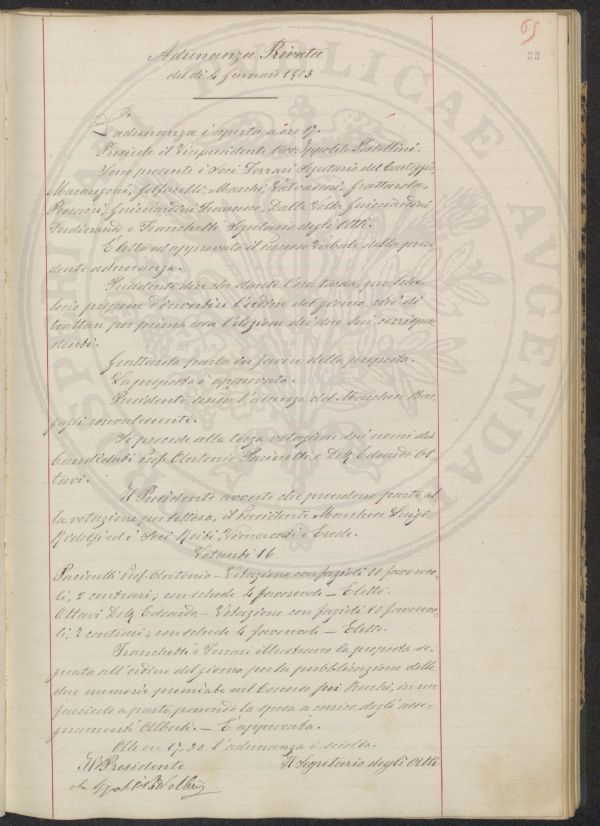 65
33
Adunanza Privata
del dì 4 Gennaio 1903
L'adunanza è aperta a ore 17.
Presiede il Vicepresidente Ippolito
Sono presenti i Soci Ferrari Segretario del Carteggio,
Marangoni, Marchi, Valvassori, Grattarola,
Pecucci, Guicciardini Francesco, Dalla Volta, Guicciardini
Ferdinando e Franchetti Segretario degli Atti.
È letto ed approvato il Processo Verbale della prece-
dente adunanza.
Presidente dice che stante l'ora tarda,
propone d'invertire l'ordine del giorno, cioè di
trattare per prima cosa l'elezione dei due Soci corrispon
denti.
Grattarola parla in favore della proposta.
La proposta è approvata.
Presidente scusa l'assenza del Marchese
convalescente.
Si procede alla terza votazione sui nomi dei
Candidati Prof. Antonio Pacinotti e Dott. Edoardo Ot
tavi.
Il Presidente avverte che prendono parte al
la votazione per lettera, il Presidente Marchese Luigi
Ridolfi ed i Soci
Votanti 16
Pacinotti Prof. Antonio – Votazione con fagioli 10 favorevo-
li, 2 contrari; con schede 4 favorevoli – Eletto.
Ottavi Dott. Edoardo – Votazione con fagioli 10 favorevo-
li, 2 contrari; con schede 4 favorevoli – Eletto.
Franchetti e Ferrari illustrano la proposta se-
gnata all'ordine del giorno per la pubblicazione delle
due memorie premiate nel Concorso in un
fascicolo a parte ponendo la spesa a carico degli asse-
gnamenti Alberti. – È approvata.
Alle ore 17.20 l'adunanza è sciolta.
Il Presidente Il Segretario degli Atti